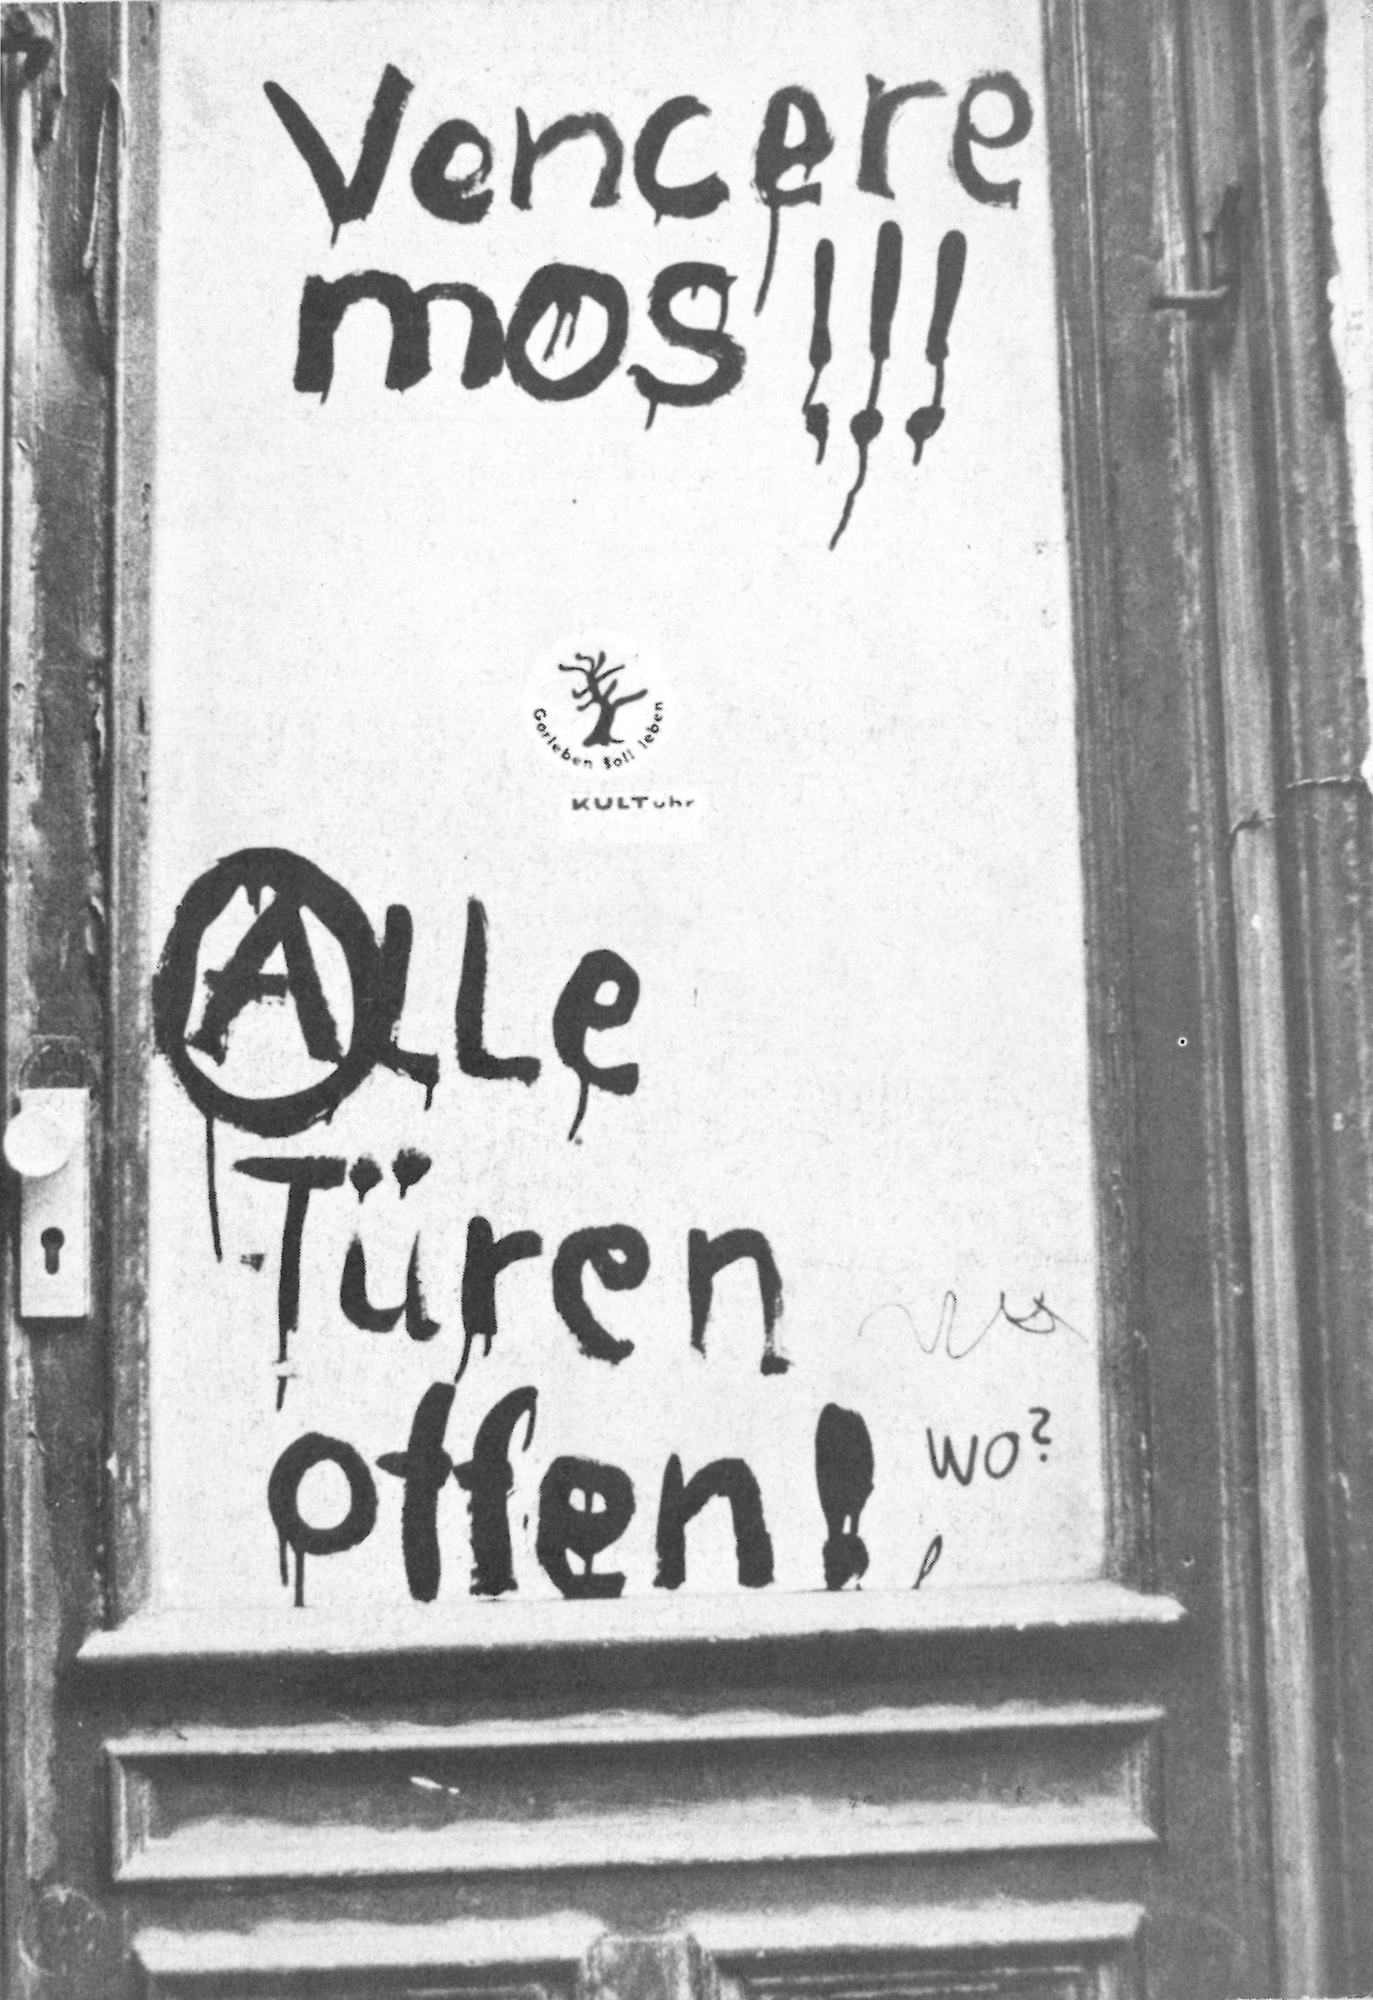 Vencere
mos!!!
Gorleben soll leben
KULTuhr
Alle
Türen
offen!
wo?